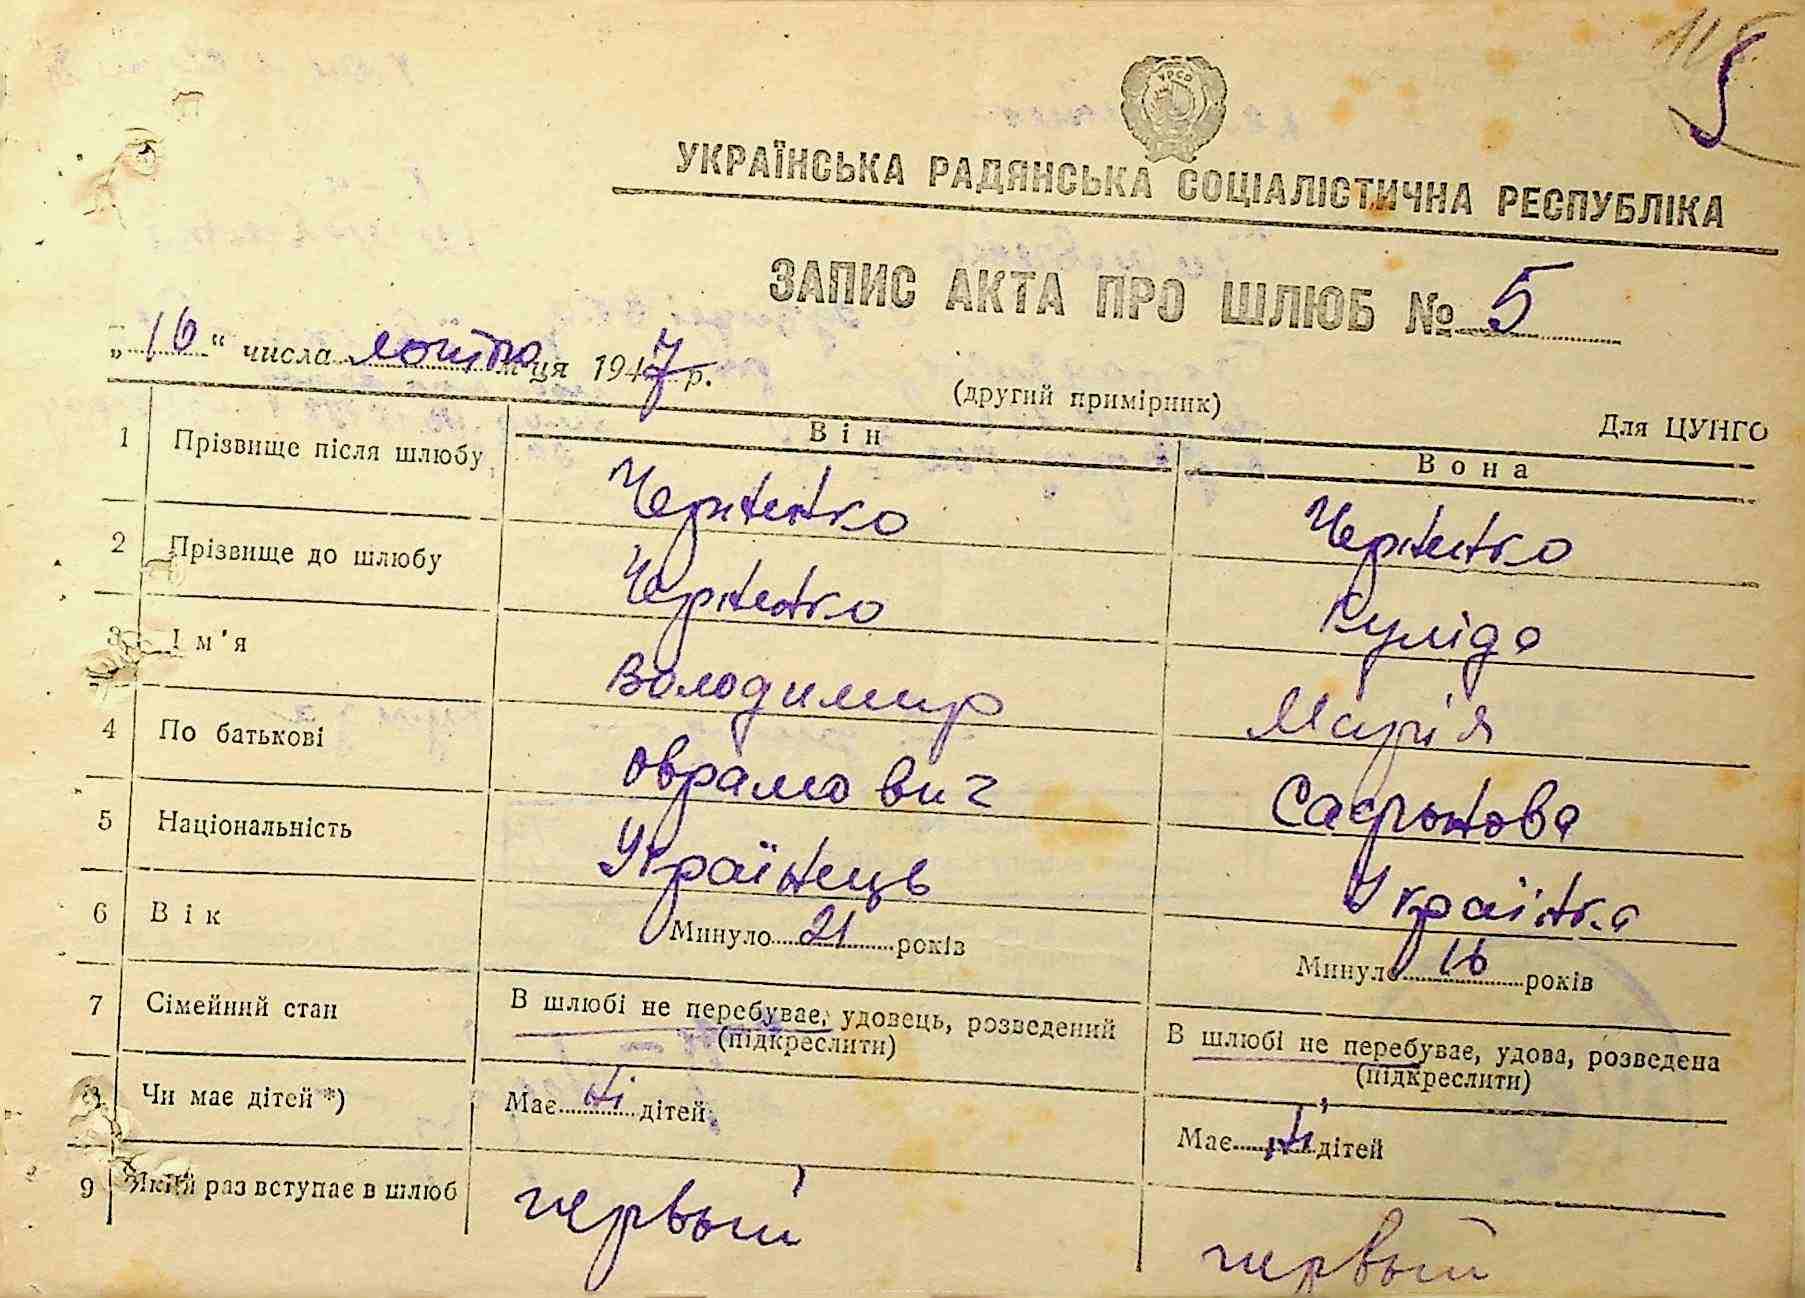 5
УРСР
УКРАЇНСЬКА РАДЯНСЬКА СОЦІАЛІСТИЧНА РЕСПУБЛІКА
ЗАПИС АКТА ПРО ШЛЮБ № 5
„16“ числа м ця 1947 р.
(другий примірник)
Для ЦУНГО
Він Вона
1 Прізвище після шлюбу Черненко Черненко
2 Прізвище до шлюбу Черненко Куліда
3 Ім'я Володимир Марія
4 По батькові Оврамович Сафронова
5 Національність Українець Українка
6 Вік Минуло 21 років Минуло 16 років
7 Сімейний стан В шлюбі не перебуває, удовець, розведений В шлюбі не перебуває, удова, розведена
(підкреслити) (підкреслити)
8 Чи має дітей *) Має ні дітей Має ні дітей
9 Який раз вступає в шлюб первый первый